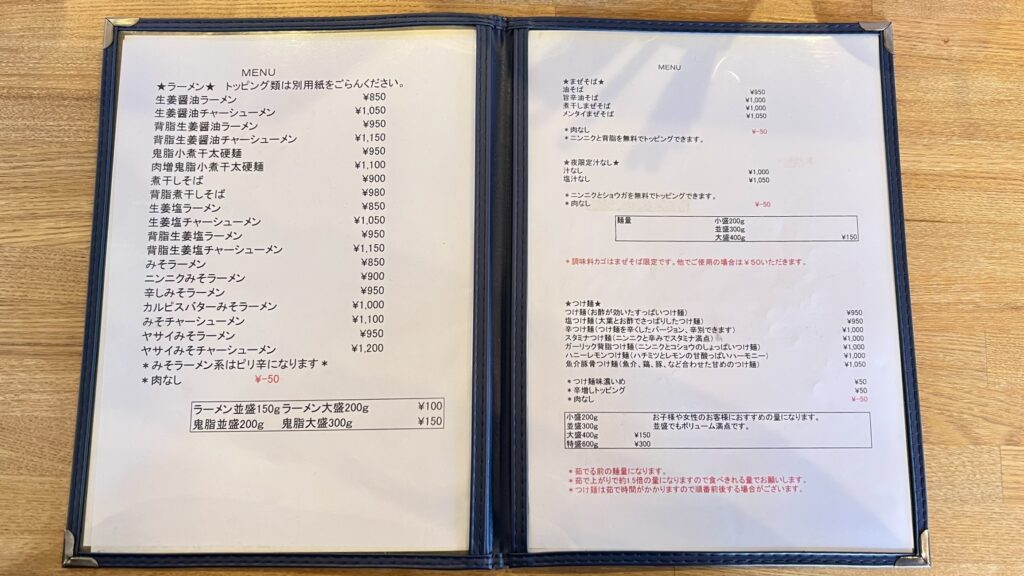 MENU
★ラーメン★ トッピング類は別用紙をごらんください。
生姜醤油ラーメン ¥850
生姜醤油チャーシューメン ¥1,050
背脂生姜醤油ラーメン ¥950
背脂生姜醤油チャーシューメン ¥1,150
鬼脂小煮干太硬麺 ¥950
肉増鬼脂小煮干太硬麺 ¥1,100
煮干しそば ¥900
背脂煮干しそば ¥980
生姜塩ラーメン ¥850
生姜塩チャーシューメン ¥1,050
背脂生姜塩ラーメン ¥950
背脂生姜塩チャーシューメン ¥1,150
みそラーメン ¥850
ニンニクみそラーメン ¥900
辛しみそラーメン ¥950
カルピスバターみそラーメン ¥1,000
みそチャーシューメン ¥1,100
ヤサイみそラーメン ¥950
ヤサイみそチャーシューメン ¥1,200
*みそラーメン系はピリ辛になります*
*肉なし ¥-50
ラーメン並盛150g ラーメン大盛200g ¥100
鬼脂並盛200g 鬼脂大盛300g ¥150
MENU
★まぜそば★
油そば ¥950
旨辛油そば ¥1,000
煮干しまぜそば ¥1,000
メンタイまぜそば ¥1,050
*肉なし ¥-50
*ニンニクと背脂を無料でトッピングできます。
★夜限定汁なし★
汁なし ¥1,000
塩汁なし ¥1,050
*ニンニクとショウガを無料でトッピングできます。
*肉なし ¥-50
麺量 小盛200g
並盛300g
大盛400g ¥150
*調味料カゴはまぜそば限定です。他でご使用の場合は¥50いただきます。
★つけ麺★
つけ麺(お酢が効いたすっぱいつけ麺) ¥950
塩つけ麺(大葉とお酢でさっぱりしたつけ麺) ¥950
辛つけ麺(つけ麺を辛くしたバージョン、辛別できます) ¥1,000
スタミナつけ麺(ニンニクと辛みでスタミナ満点) ¥1,000
ガーリック背脂つけ麺(ニンニクとコショウのしょっぱいつけ麺) ¥1,000
ハニーレモンつけ麺(ハチミツとレモンの甘酸っぱいハーモニー) ¥1,000
魚介豚骨つけ麺(魚介、鶏、豚、など合わせた甘めのつけ麺) ¥1,050
*つけ麺味濃いめ ¥50
*辛増しトッピング ¥50
*肉なし ¥-50
小盛200g お子様や女性のお客様におすすめの量になります。
並盛300g 並盛でもボリューム満点です。
大盛400g ¥150
特盛600g ¥300
*茹でる前の麺量になります。
*茹で上がりで約1.5倍の量になりますので食べきれる量でお願いします。
*つけ麺は茹で時間がかかりますので順番前後する場合がございます。